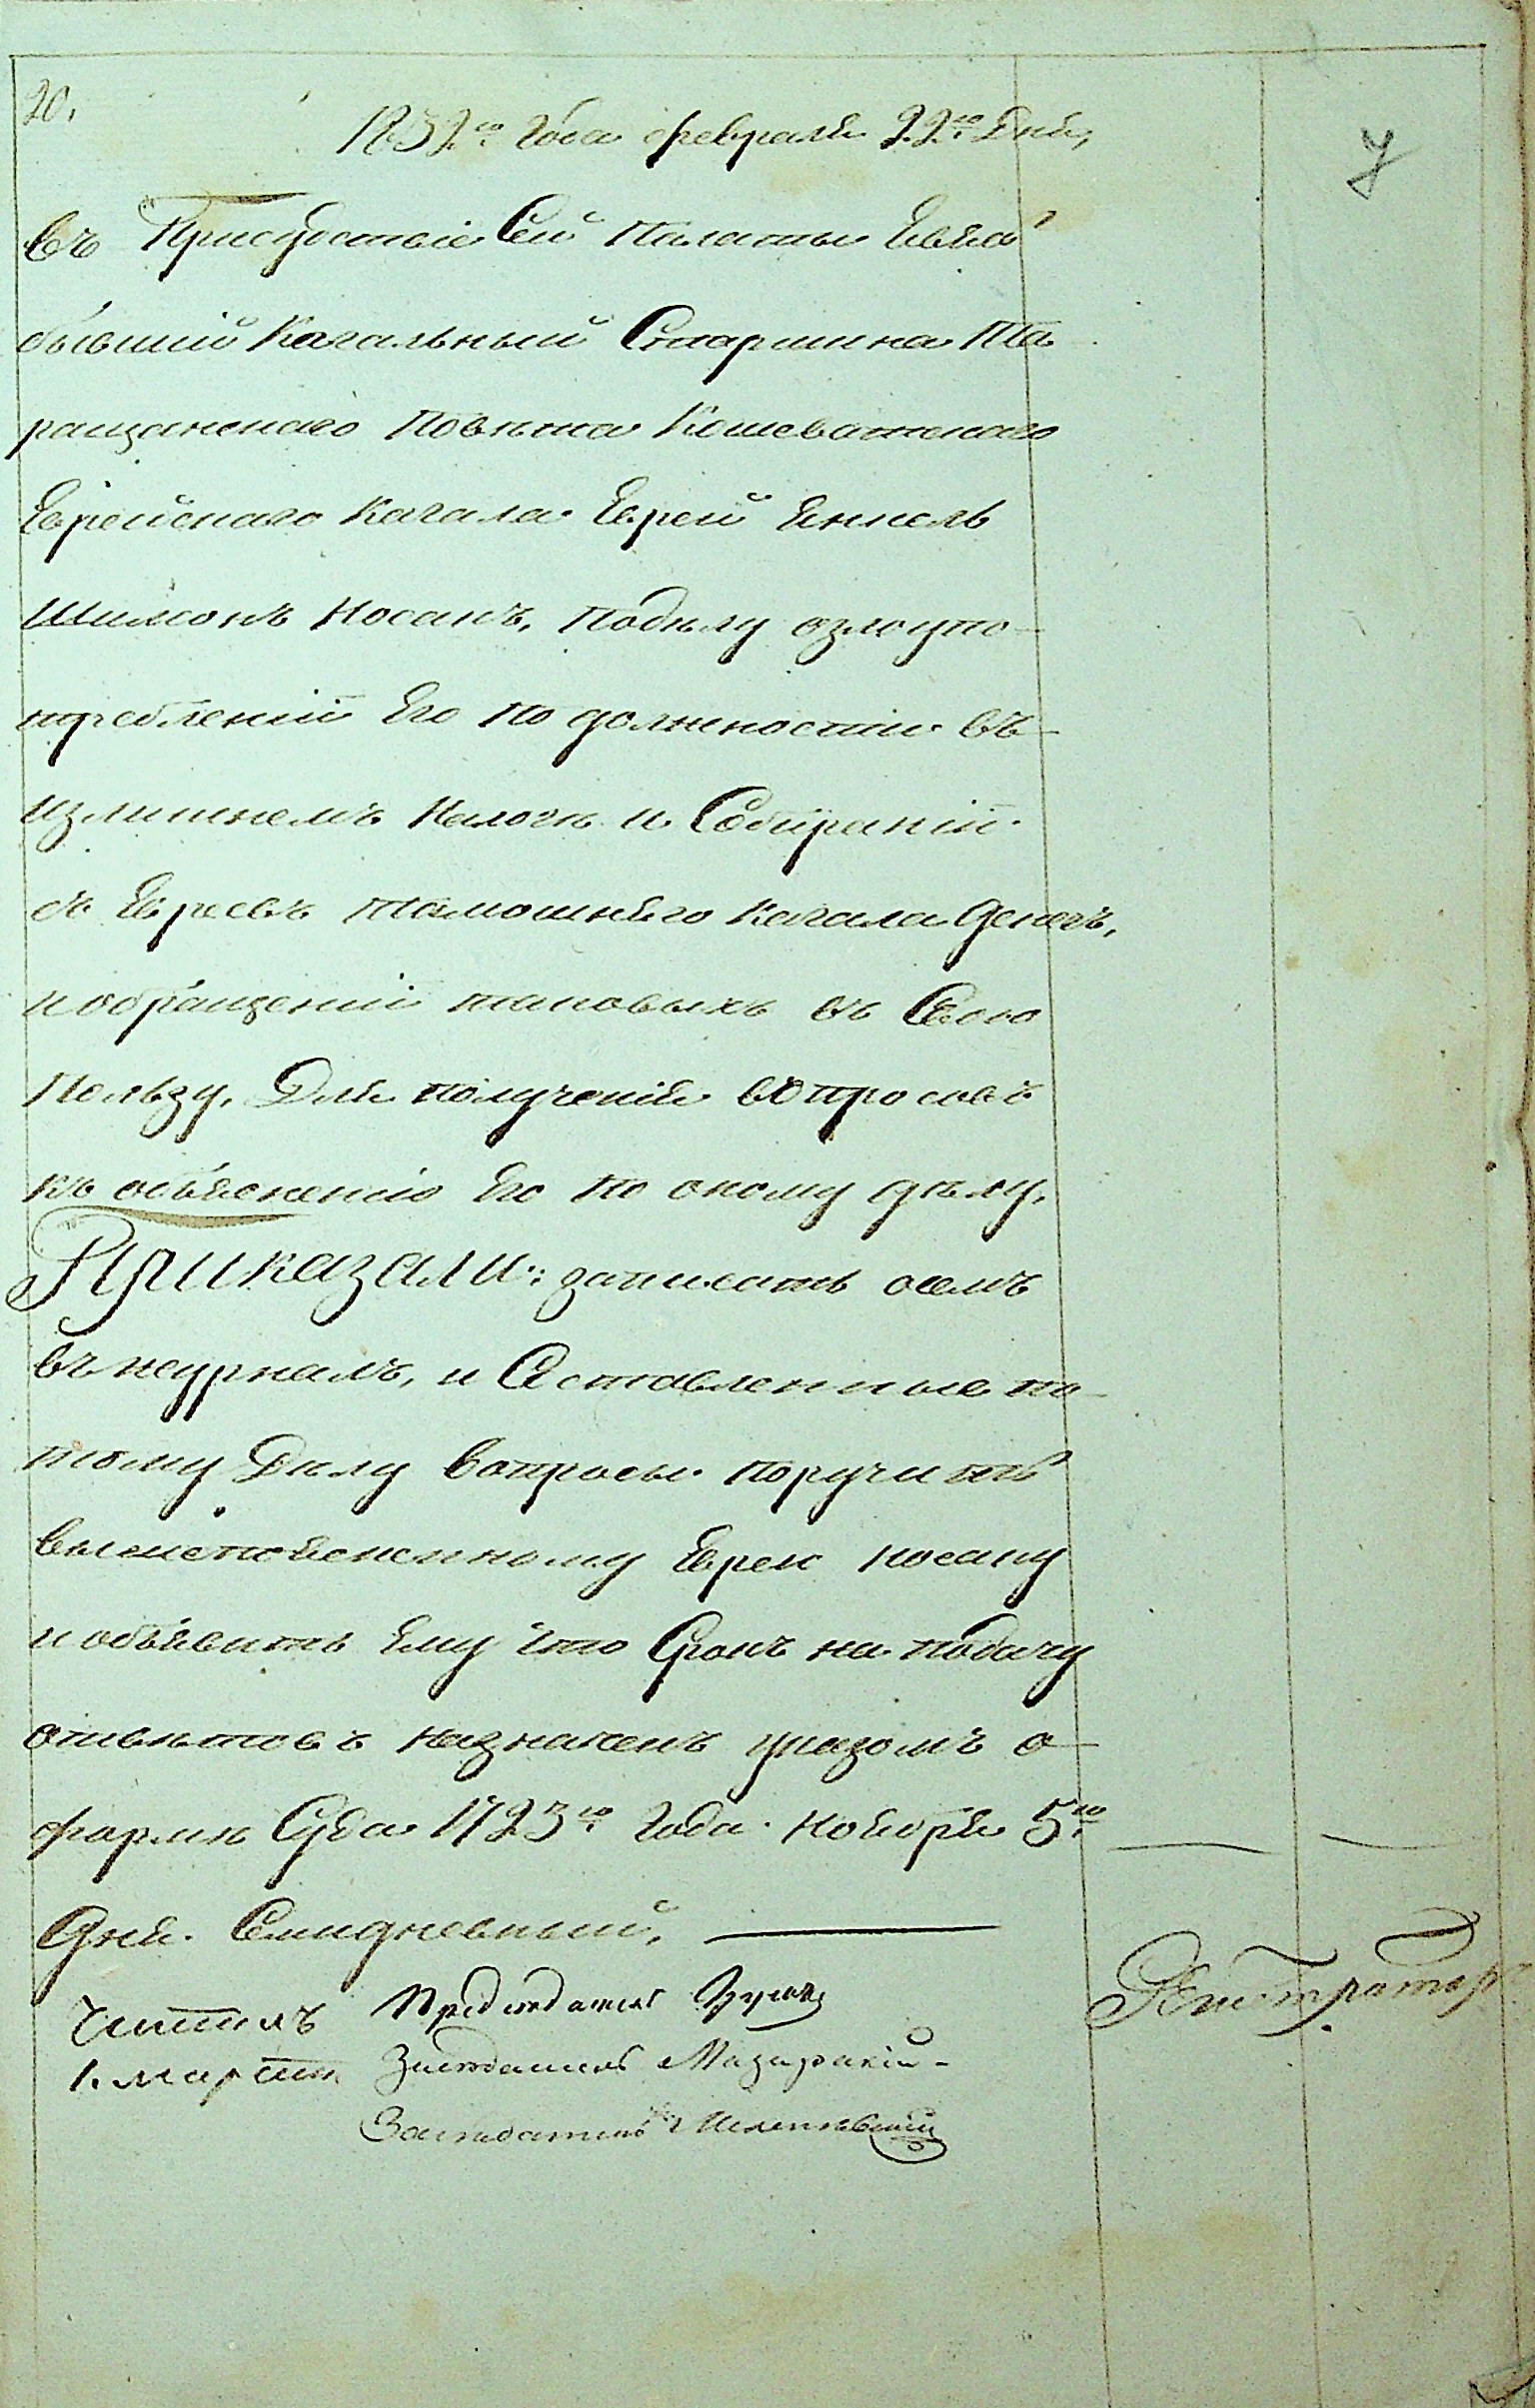 20.
1832го года февраля 22го дня,
въ Присудствіе Сей Палаты Явясь
бывшій Кагальный Старшина Та
ращанскаго Повѣта Кошеватскаго
Еврейскаго Кагала Еврей Янкель
Шимонъ Косакъ, Подѣлу озлоупо-
требленій Его по должности въ-
излишнемъ Налогѣ и Собираніи
съ Евреевъ тамошняго Кагала денегъ,
и обращеній таковыхъ въ Свою
Пользу, Для полученія вопросовъ
къ объясненію Его по оному дѣлу.
Приказали: записать осемъ
въ журналъ, и Составленные по-
тому Дѣлу вопросы поручить
вышепоясненному Еврею Косаку
и объявить Ему что Срокъ на подачу
отвѣтовъ назначенъ указомъ о-
формѣ Суда 1723го Года Ноября 5го
дня. Семидневный,
Читалъ Председатель
1. марта Заседатель Мазаракій
Заседатель
Регистраторъ